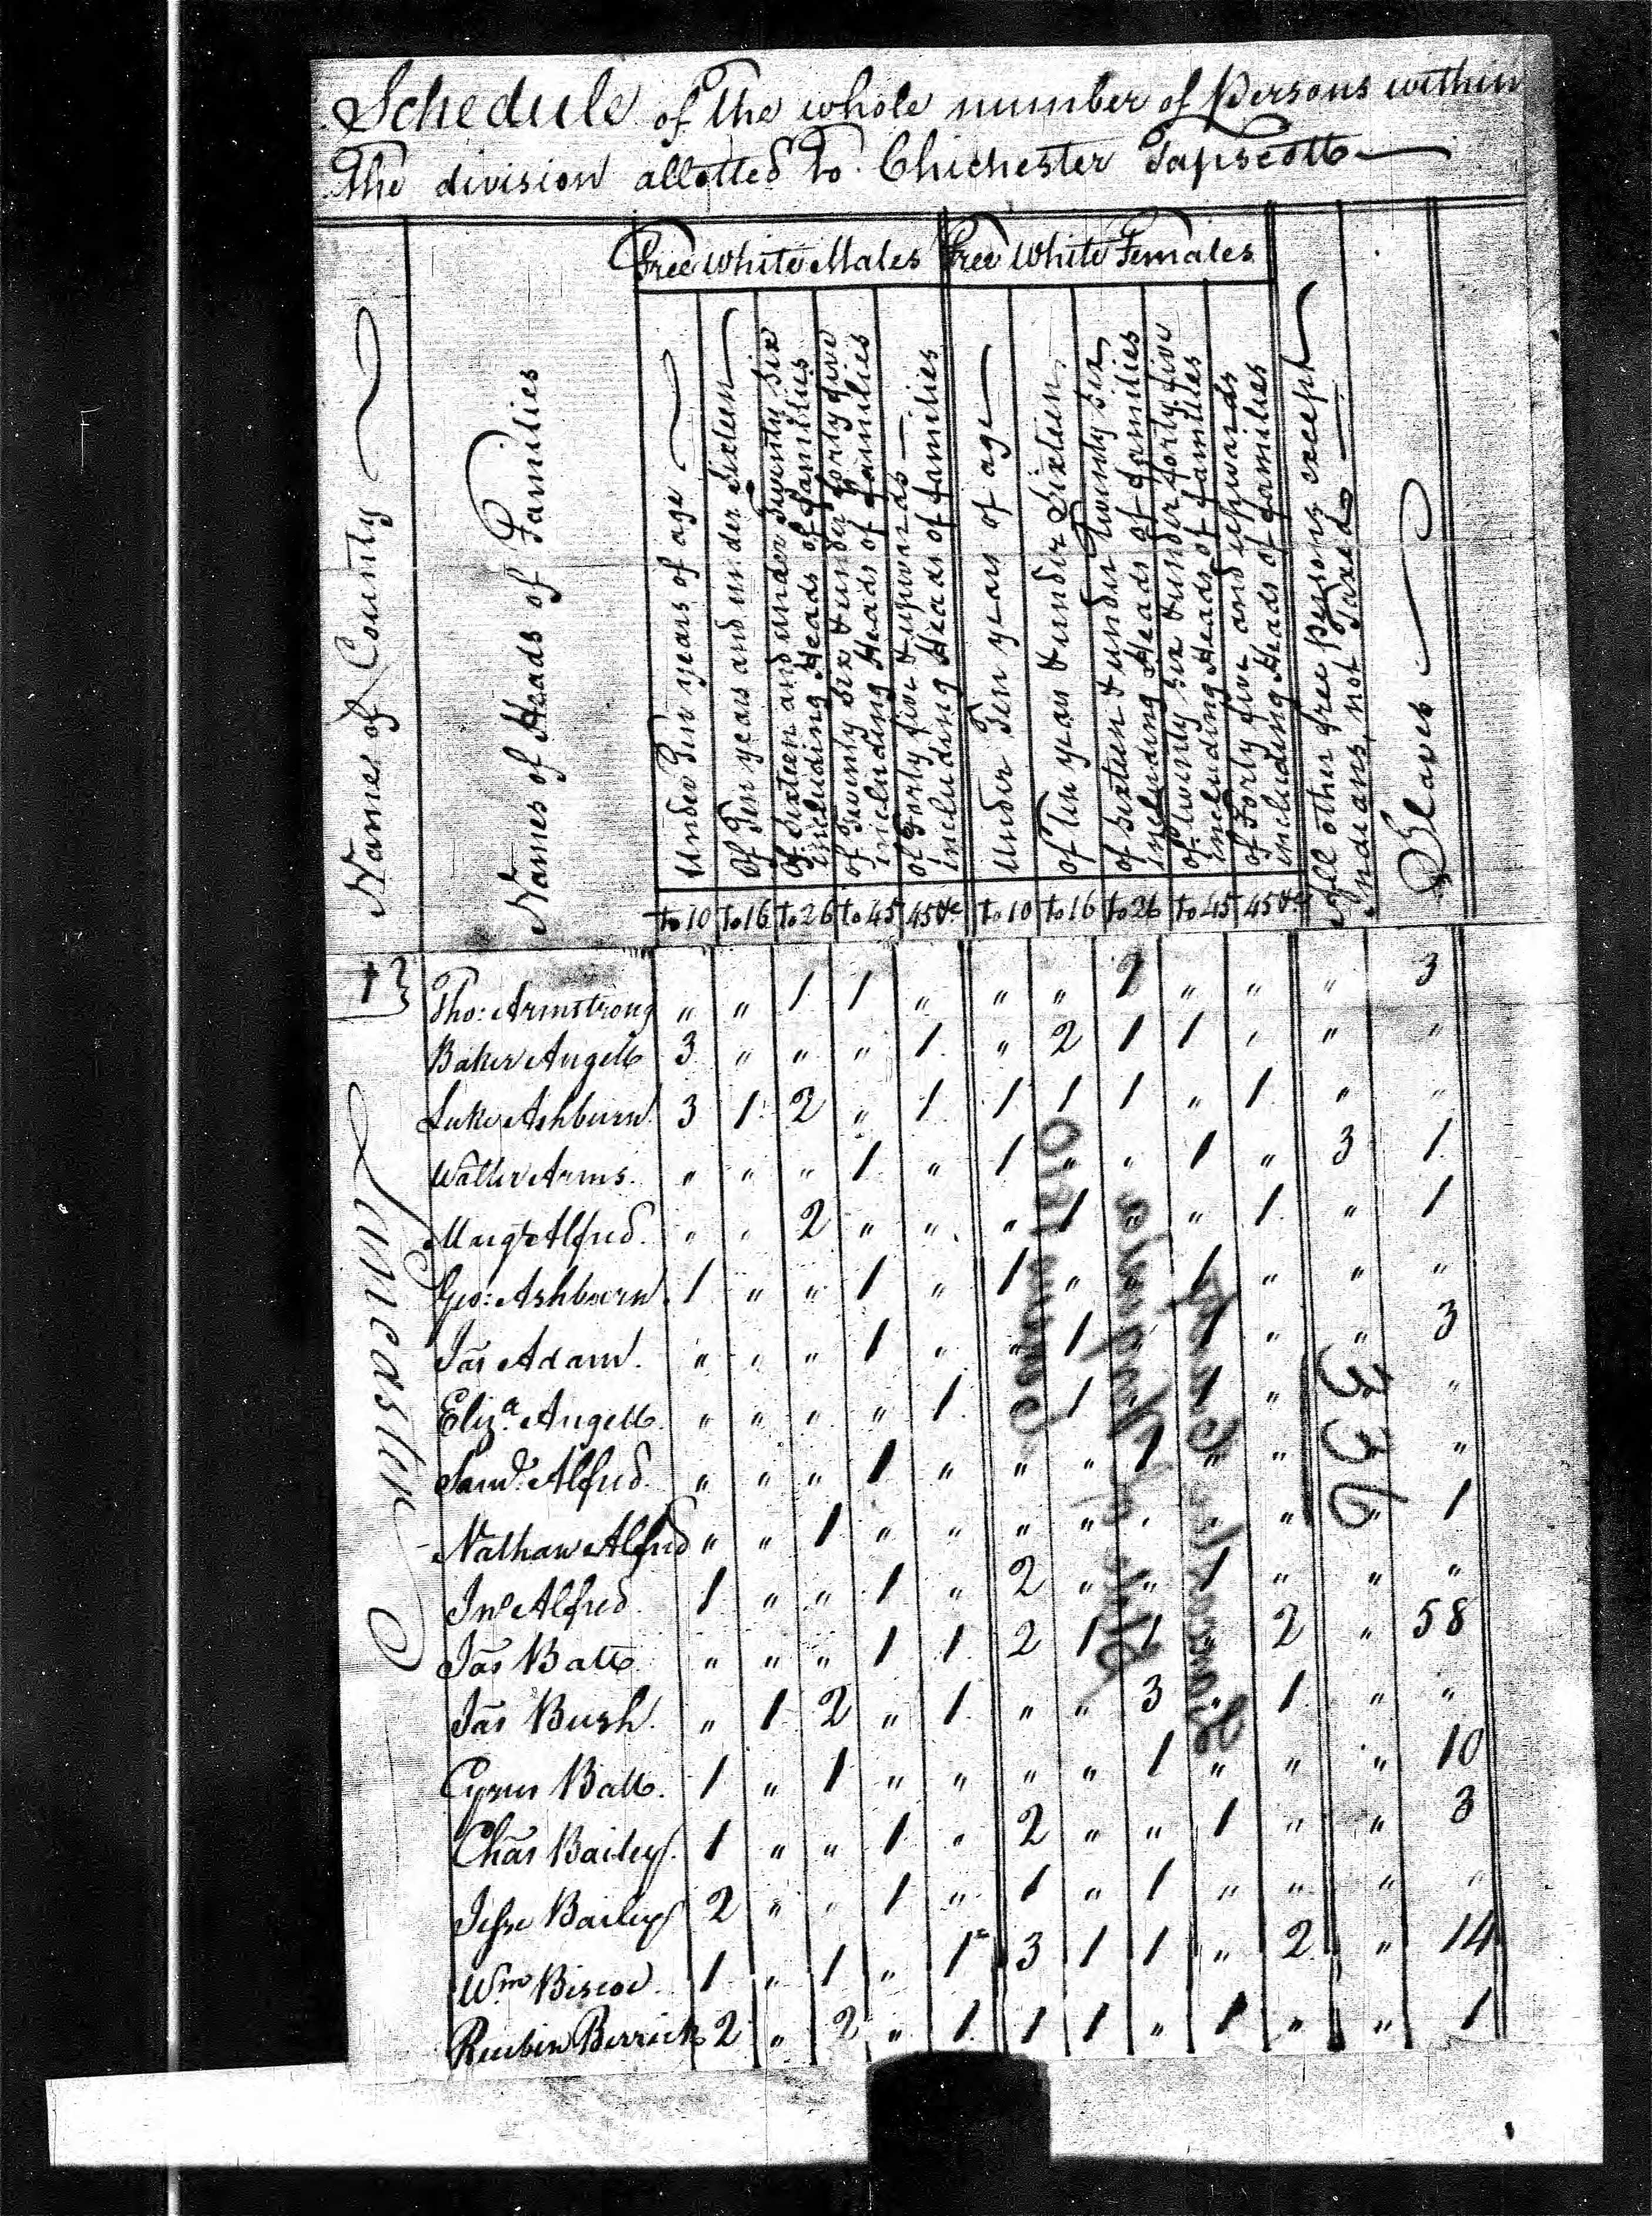 Schedule of the whole number of Persons within
The division allotted to Chichester Tapscott
Name of County
Names of Heads of Families
Free White Males
Free White Females
Under Ten years of age
Of Ten years and under Sixteen
Of Sixteen and under Twenty Six
including Heads of Families
of Twenty Six & under forty five
including Heads of families
of Forty five & upwards
including Heads of families
Under Ten years of age
of Ten years & under Sixteen
of Sixteen & under Twenty Six
including Heads of families
of twenty Six & under forty five
including Heads of families
of Forty five and upwards
including Heads of families
All other free Persons except
Indians, not Taxed
Slaves
to 10 to 16 to 26 to 45 45 &c to 10 to 16 to 26 to 45 45 &c
Lancaster
Tho: Armstrong " " 1 1 " " " 2 " " " 3
Baker Angell 3 " " " 1 " 2 1 1 " " "
Luke Ashburn 3 1 2 " 1 1 1 1 " 1 " "
Walter Arms " " " 1 " 1 " " 1 " 3 1
Margt Alfred " " 2 " " " 1 " " 1 " 1
Geo: Ashburn 1 " " 1 " 1 " " 1 " " "
Jas Adam " " " 1 " " 1 " 1 " " 3
Eliza Angell " " " " 1 " 1 " 1 " "
Saml Alfred " " " 1 " " " 1 " " "
Nathan Alfred " " 1 " " " " " " " " 1
Jno Alfred 1 " " 1 " 2 " " 1 " " "
Jas Ball " " " 1 1 2 1 1 " 2 " 58
Jas Bush " 1 2 " 1 " " 3 " 1 " "
Cyrus Ball 1 " 1 " " " " 1 " " " 10
Chas Bailey 1 " " 1 " 2 " " 1 " " 3
Jesse Bailey 2 " " 1 " 1 " 1 " " " "
Wm Biscoe 1 " 1 " 1 3 1 1 " 2 " 14
Reubin Berrick 2 " 2 " 1 1 1 " 1 " " 1
336